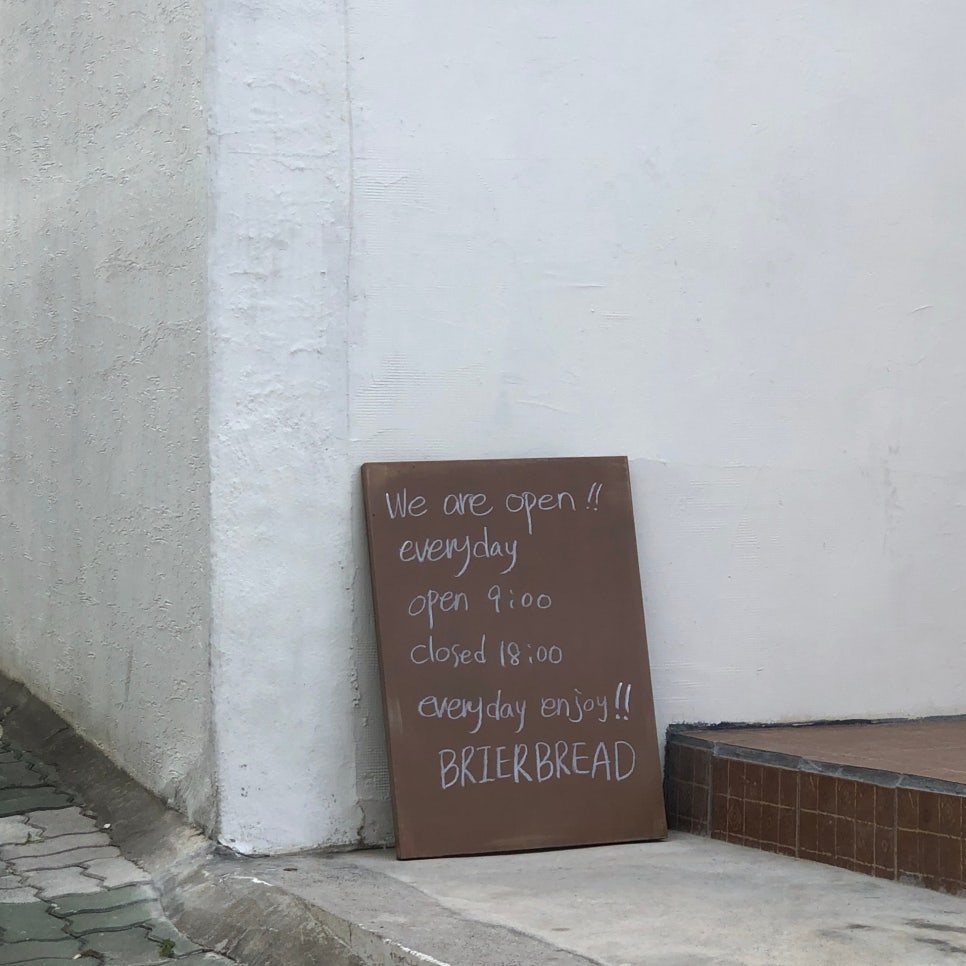 We are open!!
everyday
open 9:00
closed 18:00
everyday enjoy!!
BRIERBREAD